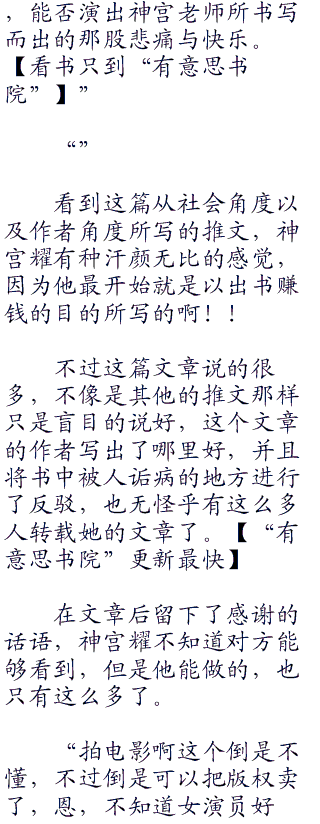 ，能否演出神宫老师所书写
而出的那股悲痛与快乐。
【看书只到“有意思书
院”】”
“”
看到这篇从社会角度以
及作者角度所写的推文，神
宫耀有种汗颜无比的感觉，
因为他最开始就是以出书赚
钱的目的所写的啊！！
不过这篇文章说的很
多，不像是其他的推文那样
只是盲目的说好，这个文章
的作者写出了哪里好，并且
将书中被人诟病的地方进行
了反驳，也无怪乎有这么多
人转载她的文章了。【“有
意思书院”更新最快】
在文章后留下了感谢的
话语，神宫耀不知道对方能
够看到，但是他能做的，也
只有这么多了。
“拍电影啊这个倒是不
懂，不过倒是可以把版权卖
了，恩，不知道女演员好